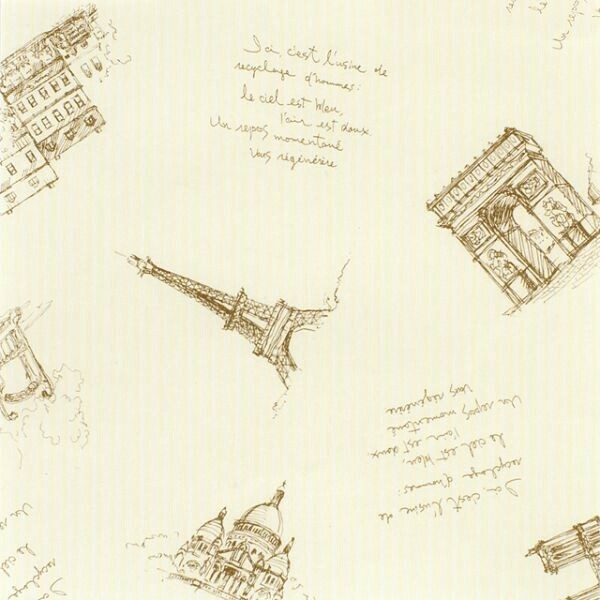 Ici, c'est l'usine de
recyclage d'hommes:
le ciel est bleu,
l'air est doux.
Un repos momentané
Vous régénère
Ici, c'est l'usine de
recyclage d'hommes:
le ciel est bleu,
l'air est doux.
Un repos momentané
Vous régénère